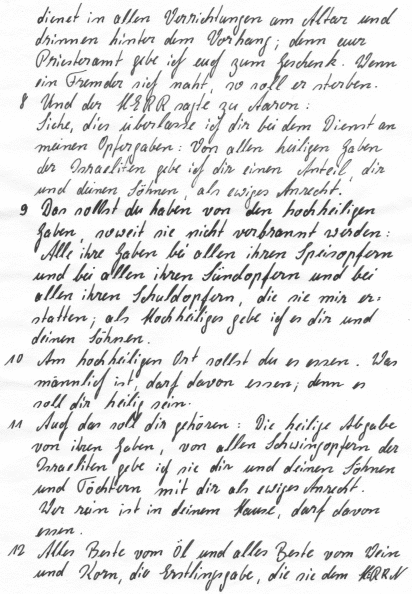 dienet in allen Verrichtungen am Altar und
drinnen hinter dem Vorhang; denn euer
Priesteramt gebe ich euch zum Geschenk. Wenn
ein Fremder sich naht, so soll er sterben.
8 Und der HERR sagte zu Aaron:
Siehe, dies überlasse ich dir bei dem Dienst an
meinen Opfergaben: Von allen heiligen Gaben
der Israeliten gebe ich dir einen Anteil, dir
und deinen Söhnen, als ewiges Anrecht.
9 Das sollst du haben von den hochheiligen
Gaben, soweit sie nicht verbrannt werden:
Alle ihre Gaben bei allen ihren Speisopfern
und bei allen ihren Sündopfern und bei
allen ihren Schuldopfern, die sie mir er=
statten; als Hochheiliges gebe ich es dir und
deinen Söhnen.
10 Am hochheiligen Ort sollst du es essen. Was
männlich ist, darf davon essen; denn es
soll dir heilig sein.
11 Auch das soll dir gehören: Die heilige Abgabe
von ihren Gaben, von allen Schwingopfern der
Israeliten gebe ich sie dir und deinen Söhnen
und Töchtern mit dir als ewiges Anrecht.
Wer rein ist in deinem Hause, darf davon
essen.
12 Alles Beste vom Öl und alles Beste vom Wein
und Korn, die Erstlingsgabe, die sie dem HERRN